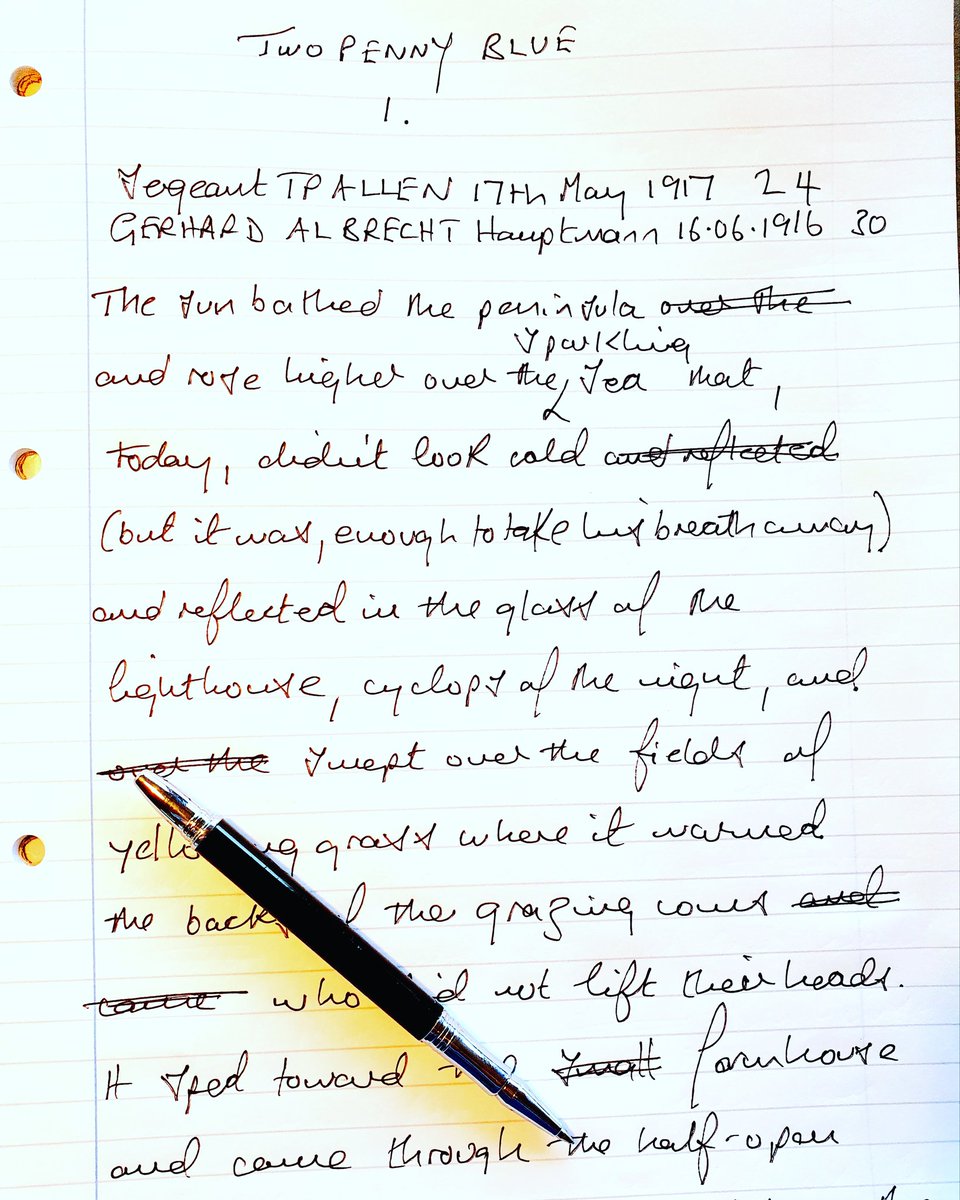 TWO PENNY BLUE
1.
Sergeant TP ALLEN 17th May 1917 24
GERHARD ALBRECHT Hauptmann 16.06.1916 30
The sun bathed the peninsula over the
sparkling
and rose higher over the sea that,
today, didn't look cold and reflected
(but it was, enough to take his breath away)
and reflected in the glass of the
lighthouse, cyclops of the night, and
over the swept over the fields of
grass where it warmed
the backs the grazing cows and
came who not lift their heads.
It sped toward small farmhouse
and came through the half-open